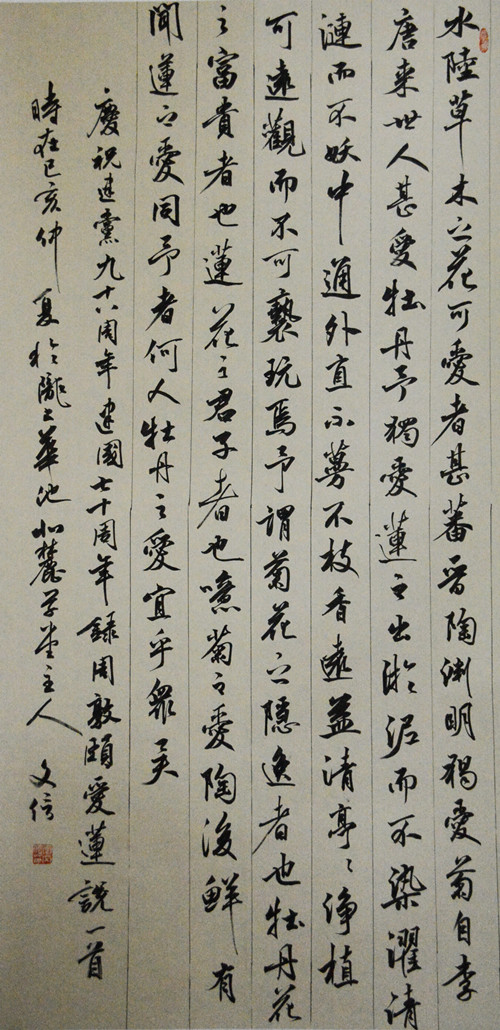 水陸草木之花可愛者甚蕃晋陶渊明獨愛菊自李
唐来世人甚愛牡丹予獨愛蓮之出淤泥而不染濯清
漣而不妖中通外直不蔓不枝香遠益清亭〻净植
可遠觀而不可褻玩焉予謂菊花之隱逸者也牡丹花
之富貴者也蓮花之君子者也噫菊之愛陶後鮮有
聞蓮之愛同予者何人牡丹之愛宜乎衆矣
慶祝建黨九十八周年建國七十周年録周敦頤愛蓮説一首
時在己亥仲夏於隴上華池北麓草堂主人文信